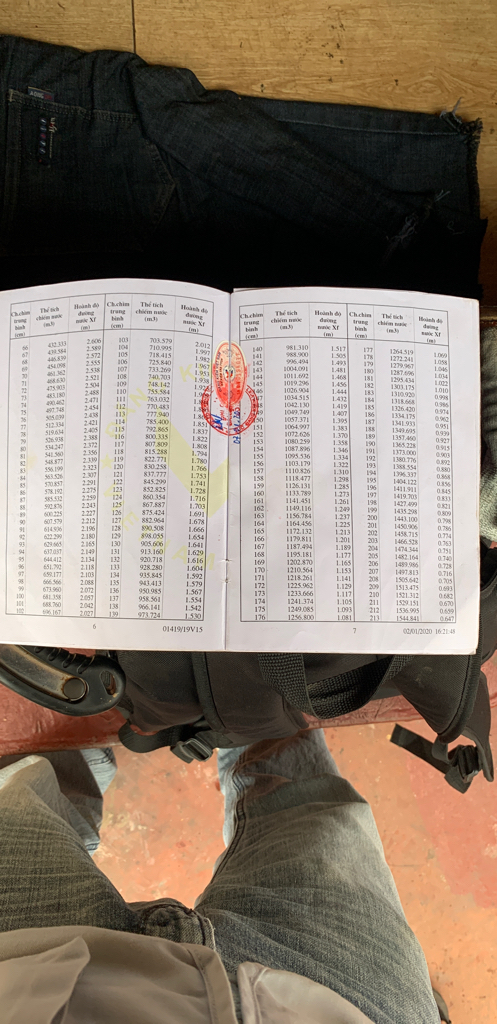 Ch.chìm trung bình (cm) Thể tích chiếm nước (m3) Hoành độ đường nước Xf (m) Ch.chìm trung bình (cm) Thể tích chiếm nước (m3) Hoành độ đường nước Xf (m)
66 432.333 2.606 103 703.579 2.012
67 439.584 2.589 104 710.995 1.997
68 446.839 2.572 105 718.415 1.982
69 454.098 2.555 106 725.840 1.967
70 461.362 2.538 107 733.269 1.953
71 468.630 2.521 108 740.703 1.938
72 475.903 2.504 109 748.142
73 483.180 2.488 110 755.584
74 490.462 2.471 111 763.032
75 497.748 2.454 112 770.483
76 505.039 2.438 113 777.940
77 512.334 2.421 114 785.400 1.851
78 519.634 2.405 115 792.865 1.837
79 526.938 2.388 116 800.335 1.822
80 534.247 2.372 117 807.809 1.808
81 541.560 2.356 118 815.288 1.794
82 548.877 2.339 119 822.771 1.780
83 556.199 2.323 120 830.258 1.766
84 563.526 2.307 121 837.777 1.753
85 570.857 2.291 122 845.299 1.741
86 578.192 2.275 123 852.825 1.728
87 585.532 2.259 124 860.354 1.716
88 592.876 2.243 125 867.887 1.703
89 600.225 2.227 126 875.424 1.691
90 607.579 2.212 127 882.964 1.678
91 614.936 2.196 128 890.508 1.666
92 622.299 2.180 129 898.055 1.654
93 629.665 2.165 130 905.606 1.641
94 637.037 2.149 131 913.160 1.629
95 644.412 2.134 132 920.718 1.616
96 651.792 2.118 133 928.280 1.604
97 659.177 2.103 134 935.845 1.592
98 666.566 2.088 135 943.413 1.579
99 673.960 2.072 136 950.985 1.567
100 681.358 2.057 137 958.561 1.554
101 688.760 2.042 138 966.141 1.542
102 696.167 2.027 139 973.724 1.530
6 01419/19V15
Ch.chìm trung bình (cm) Thể tích chiếm nước (m3) Hoành độ đường nước Xf (m) Ch.chìm trung bình (cm) Thể tích chiếm nước (m3) Hoành độ đường nước Xf (m)
140 981.310 1.517 177 1264.519 1.069
141 988.900 1.505 178 1272.241 1.058
142 996.494 1.493 179 1279.967 1.046
143 1004.091 1.481 180 1287.696 1.034
144 1011.692 1.468 181 1295.434 1.022
145 1019.296 1.456 182 1303.175 1.010
146 1026.904 1.444 183 1310.920 0.998
147 1034.515 1.432 184 1318.668 0.986
148 1042.130 1.419 185 1326.420 0.974
149 1049.749 1.407 186 1334.175 0.962
150 1057.371 1.395 187 1341.933 0.951
151 1064.997 1.383 188 1349.695 0.939
152 1072.626 1.370 189 1357.460 0.927
153 1080.259 1.358 190 1365.228 0.915
154 1087.896 1.346 191 1373.000 0.903
155 1095.536 1.334 192 1380.776 0.892
156 1103.179 1.322 193 1388.554 0.880
157 1110.826 1.310 194 1396.337 0.868
158 1118.477 1.298 195 1404.122 0.856
159 1126.131 1.285 196 1411.911 0.845
160 1133.789 1.273 197 1419.703 0.833
161 1141.451 1.261 198 1427.499 0.821
162 1149.116 1.249 199 1435.298 0.809
163 1156.784 1.237 200 1443.100 0.798
164 1164.456 1.225 201 1450.906 0.786
165 1172.132 1.213 202 1458.715 0.774
166 1179.811 1.201 203 1466.528 0.763
167 1187.494 1.189 204 1474.344 0.751
168 1195.181 1.177 205 1482.164 0.740
169 1202.870 1.165 206 1489.986 0.728
170 1210.564 1.153 207 1497.813 0.716
171 1218.261 1.141 208 1505.642 0.705
172 1225.962 1.129 209 1513.475 0.693
173 1233.666 1.117 210 1521.312 0.682
174 1241.374 1.105 211 1529.151 0.670
175 1249.085 1.093 212 1536.995 0.659
176 1256.800 1.081 213 1544.841 0.647
7 02/01/2020 16:21:48